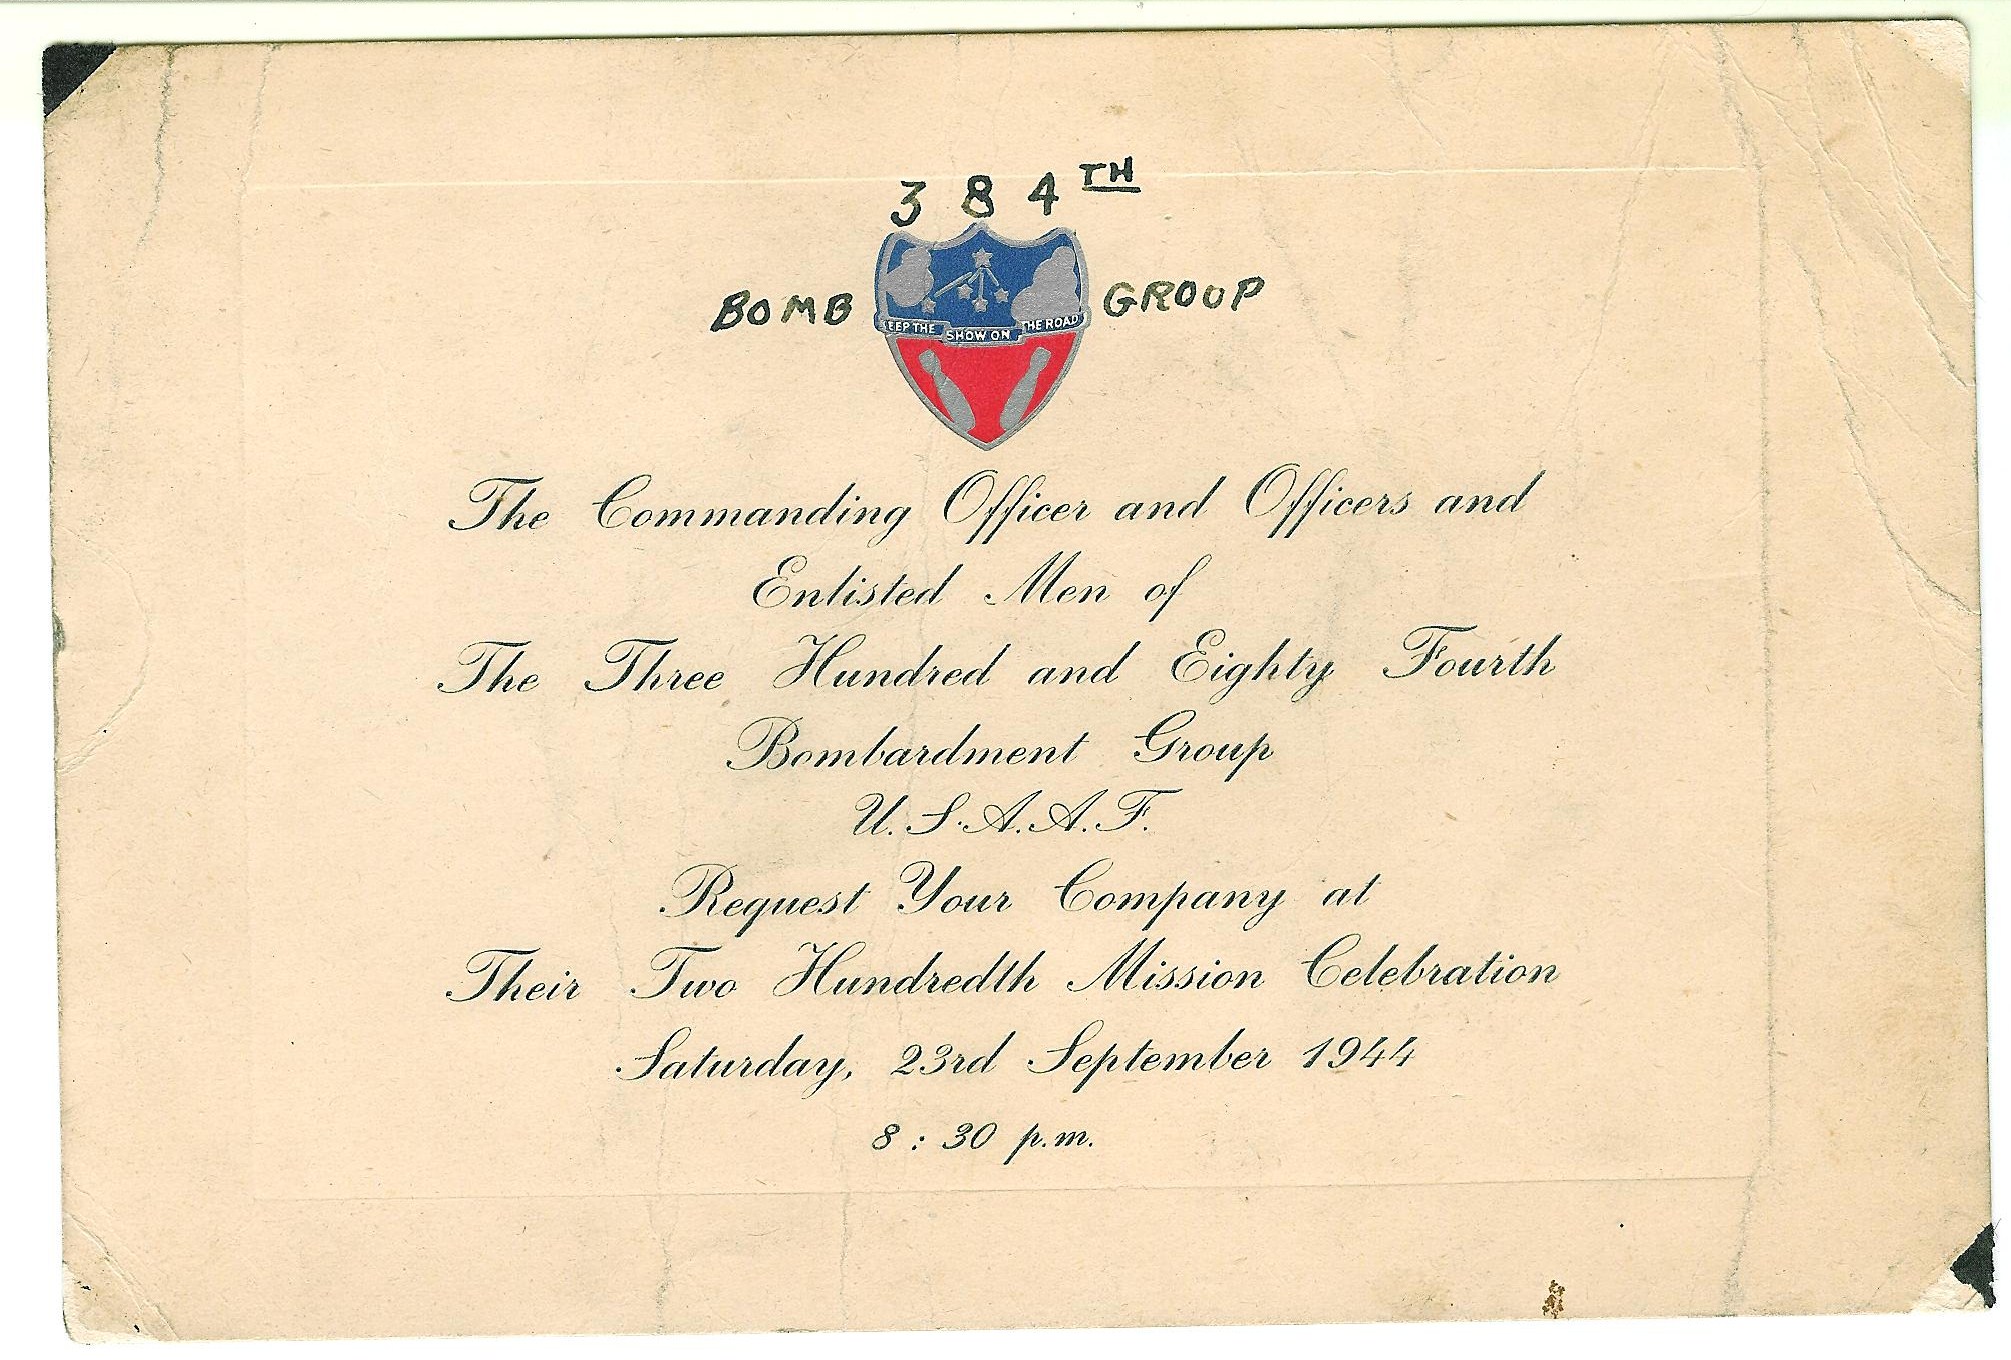 3 8 4 TH
BOMB GROUP
EEP THE SHOW ON THE ROAD
The Commanding Officer and Officers and
Enlisted Men of
The Three Hundred and Eighty Fourth
Bombardment Group
U. S. A. A. F.
Request Your Company at
Their Two Hundredth Mission Celebration
Saturday, 23rd September 1944
8 : 30 p.m.